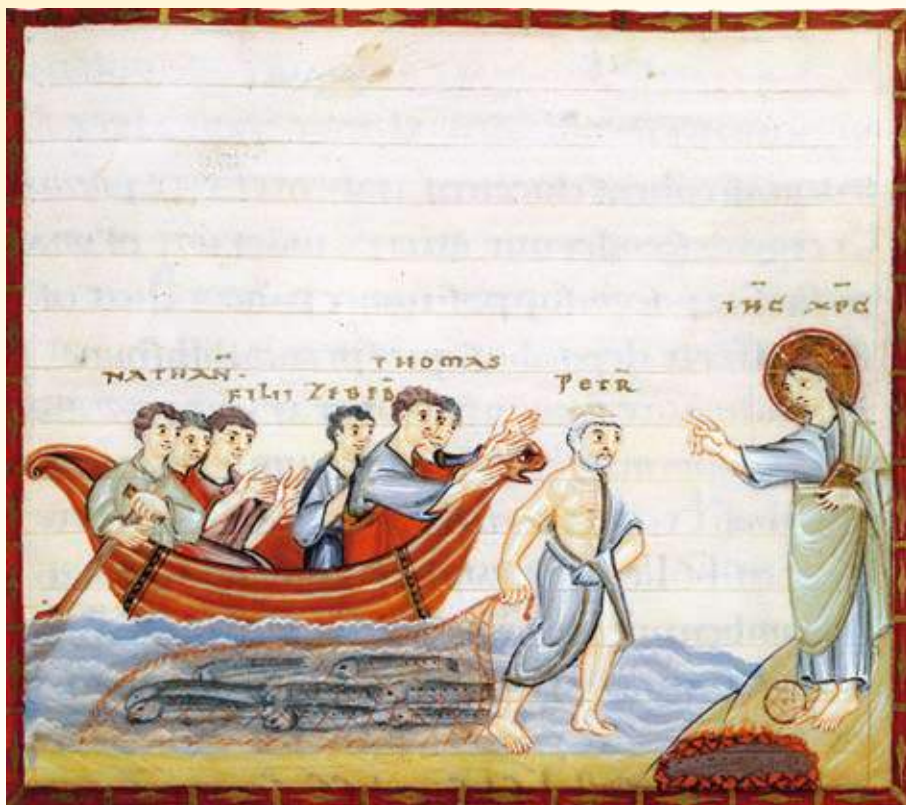 NATHAN·
FILII ZEBED̄
THOMAS
PETR̄
ΙΗC XPC